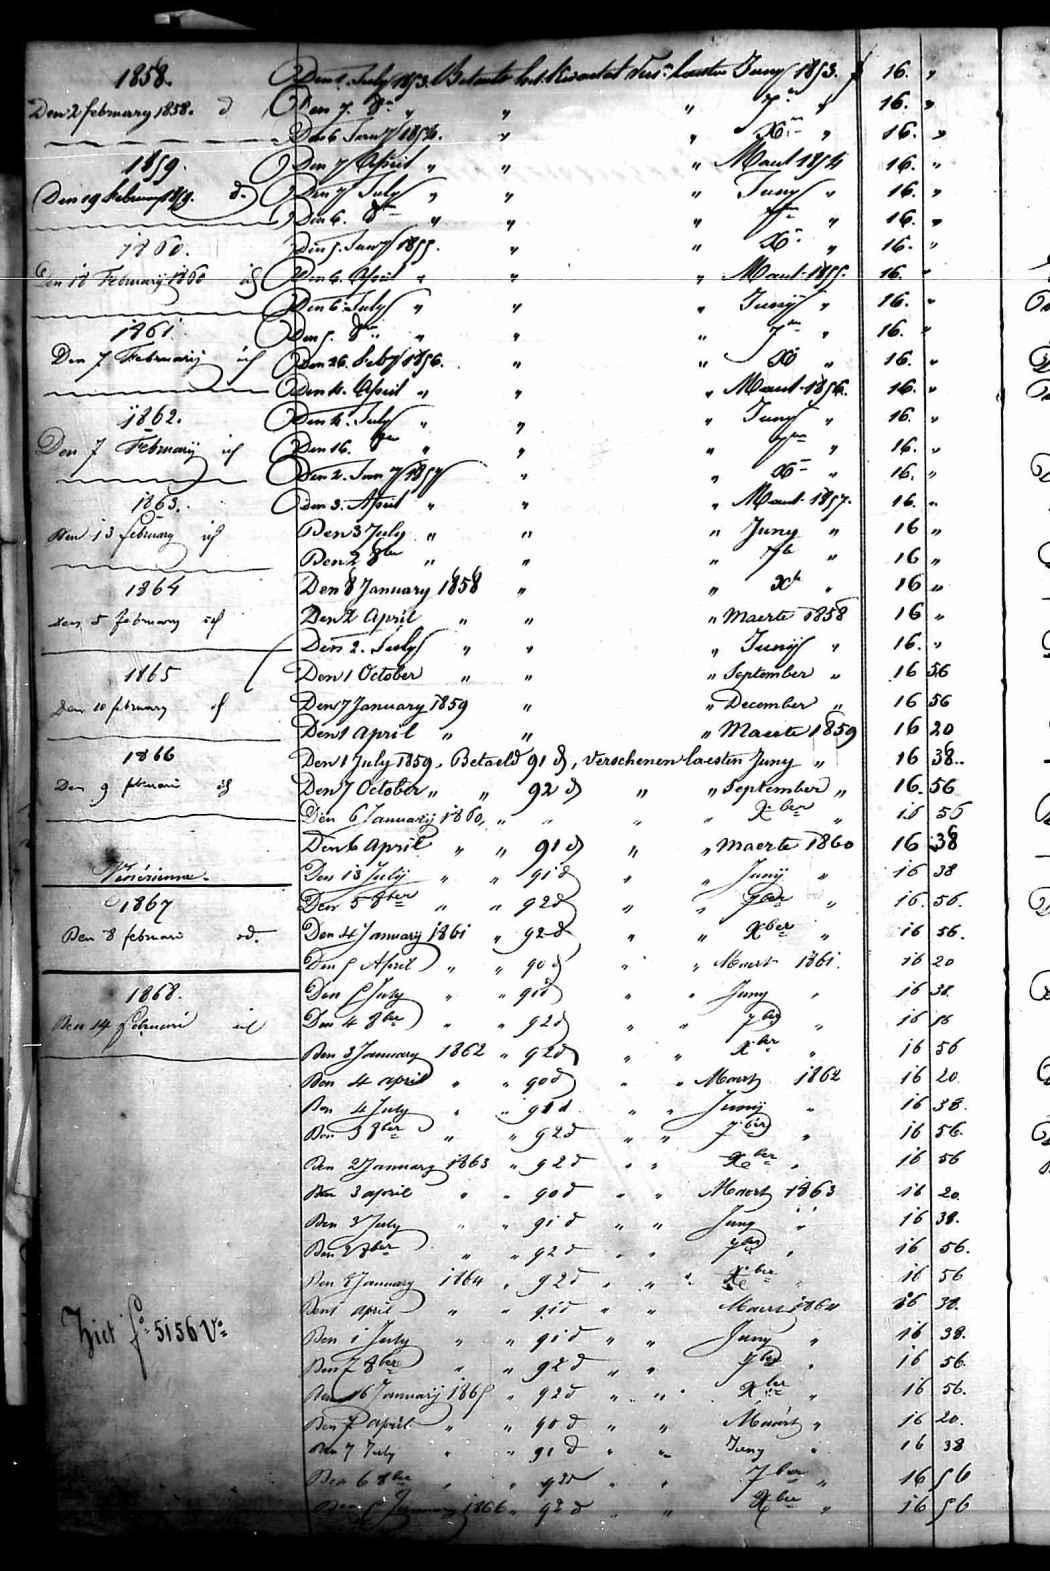 1858.
Den 2 february 1858. d
1859.
Den 19 February 1859. d.
1860.
Den 18 Februarij 1860 id
1861.
Den 7 Februarij id
1862.
Den 7 Februarij id
1863.
Den 13 february id
1864
den 5 february id
1865
Den 10 february id
1866
Den 9 februari id
1867
Den 8 februari id.
1868.
Den 14 februari id
Ziet fo. 5156 Vo.
Den 1. July 1853. Betaald het Kwartaal laesten Juny 1853. f 16. "
Den 7. 8re " " " 7re " 16. "
Den 6 Jany 1854. " " Xre " 16. "
Den 7 April " " " Maert 1854 16. "
Den 7 July " " " Juny " 16. "
Den 6. 8re " " " 7re " 16. "
Den 5. Jany 1855. " " Xre " 16. "
Den 6. April " " " Maert 1855. 16. "
Den 6. July " " " Junij " 16. "
Den 5. 8re " " " 7re " 16. "
Den 26. Feby 1856. " " Xre " 16. "
Den 4. April " " " Maert 1856. 16. "
Den 4. July " " " Juny " 16. "
Den 16. 8re " " 7re " 16. "
Den 2. Jany 1857 " " Xre " 16. "
Den 3. April " " " Maert 1857. 16. "
Den 3 July " " " Juny " 16 "
Den 2 8bre " " " 7b " 16 "
Den 8 January 1858 " " Xb " 16 "
Den 2 April " " " Maerte 1858 16 "
Den 2. July " " " Junij " 16. "
Den 1 October " " " September " 16 56
Den 7 January 1859 " " December " 16 56
Den 1 April " " " Maerte 1859 16 20
Den 1 July 1859, Betaeld 91 d, verschenen laesten Juny " 16 38
Den 7 October " " 92 d " " September " 16. 56
Den 6 Januarij 1860, " " " " Xber " 16 56
Den 6 April " " 91 d " " Maerte 1860 16 38
Den 13 July " " 91 d " " Junij " 16 38
Den 5 8ber " " 92 d " " 7ber " 16. 56.
Den 4 January 1861 " 92 d " " Xber " 16 56.
Den 5 April " " 90 d " " Maert 1861. 16 20
Den 5 July " " 91 d " " Juny " 16 38
Den 4 8ber " " 92 d " " 7ber " 16 56
Den 3 January 1862 " 92 d " " Xber " 16 56
Den 4 april " " 90 d " " Maert 1862 16 20
Den 4 July " " 91 d " " Junij " 16 38.
Den 3 8ber " " 92 d " " 7ber " 16 56.
Den 2 January 1863 " 92 d " " Xber " 16 56
Den 3 april " " 90 d " " Maert 1863 16 20
Den 3 July " " 91 d " " Juny " 16 38.
Den 2 8ber " " 92 d " " 7ber " 16 56.
Den 8 January 1864 " 92 d " " Xber " 16 56
Den 1 april " " 91 d " " Maert 1864 16 38.
Den 1 July " " 91 d " " Juny " 16 38.
Den 7 8ber " " 92 d " " 7ber " 16 56.
Den 16 Januarij 1865 " 92 d " " Xber " 16 56.
Den 7 april " " 90 d " " Maert " 16 20.
Den 7 July " " 91 d " " Juny " 16 38
Den 6 8bre " " 92 d " " 7ber " 16 56
Den 5 January 1866 " 92 d " " Xber " 16 56